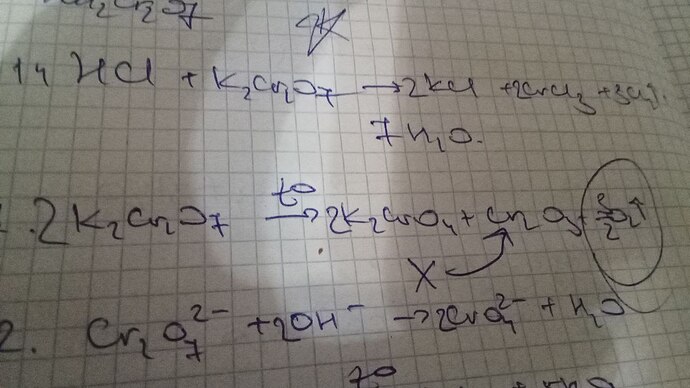 14 HCl + K₂Cr₂O₇ → 2KCl + 2CrCl₃ + 3Cl₂↑
7H₂O.
2K₂Cr₂O₇ t° → 2K₂CrO₄ + Cr₂O₃ + 3/2 O₂↑
X
2. Cr₂O₇²⁻ + 2OH⁻ → 2CrO₄²⁻ + H₂O
t°